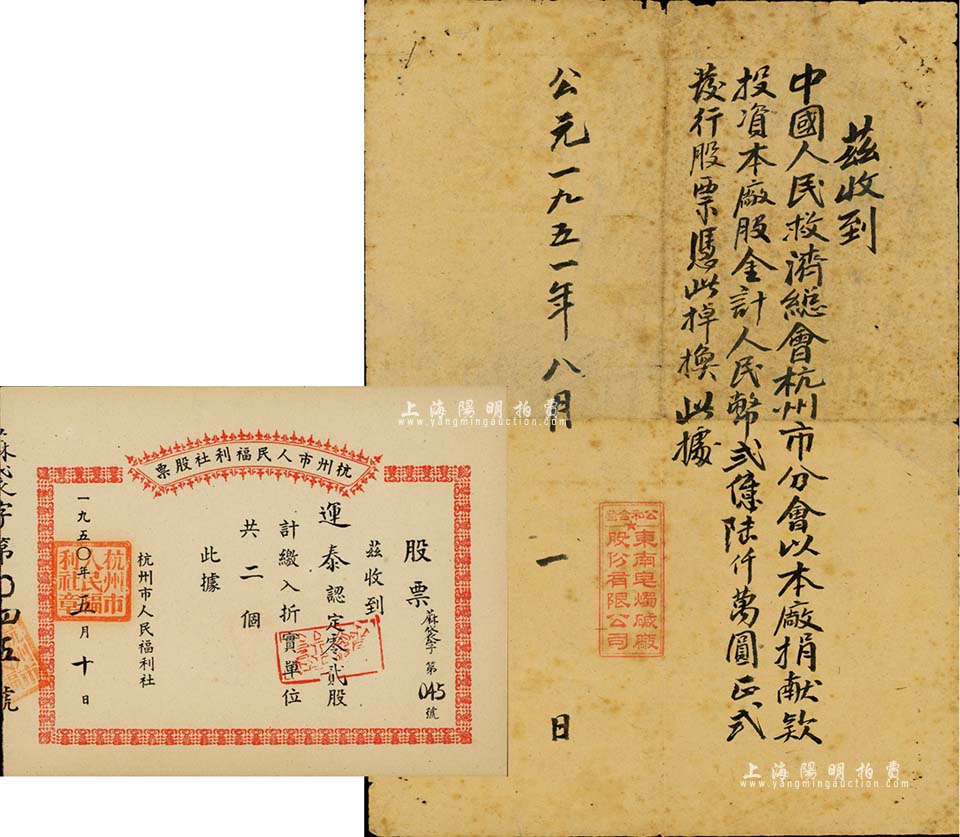 茲收到
中國人民救濟總會杭州市分會以本廠捐献款
投資本廠股金計人民幣弍億陆仟萬圓正式
發行股票憑此掉換此據
公元一九五一年八月一日
公私合營
東南皂燭碱廠
股份有限公司
杭州市人民福利社股票
股票
蔴袋字第045號
茲收到
運泰認定零貳股
計繳入折實單位
共二個
此據
杭州市人民福利社
一九五〇年五月十日
杭州市
人民福
利社章
字第0四五號
上海陽明拍賣
www.yangmingauction.com
上海陽明拍賣
www.yangmingauction.com